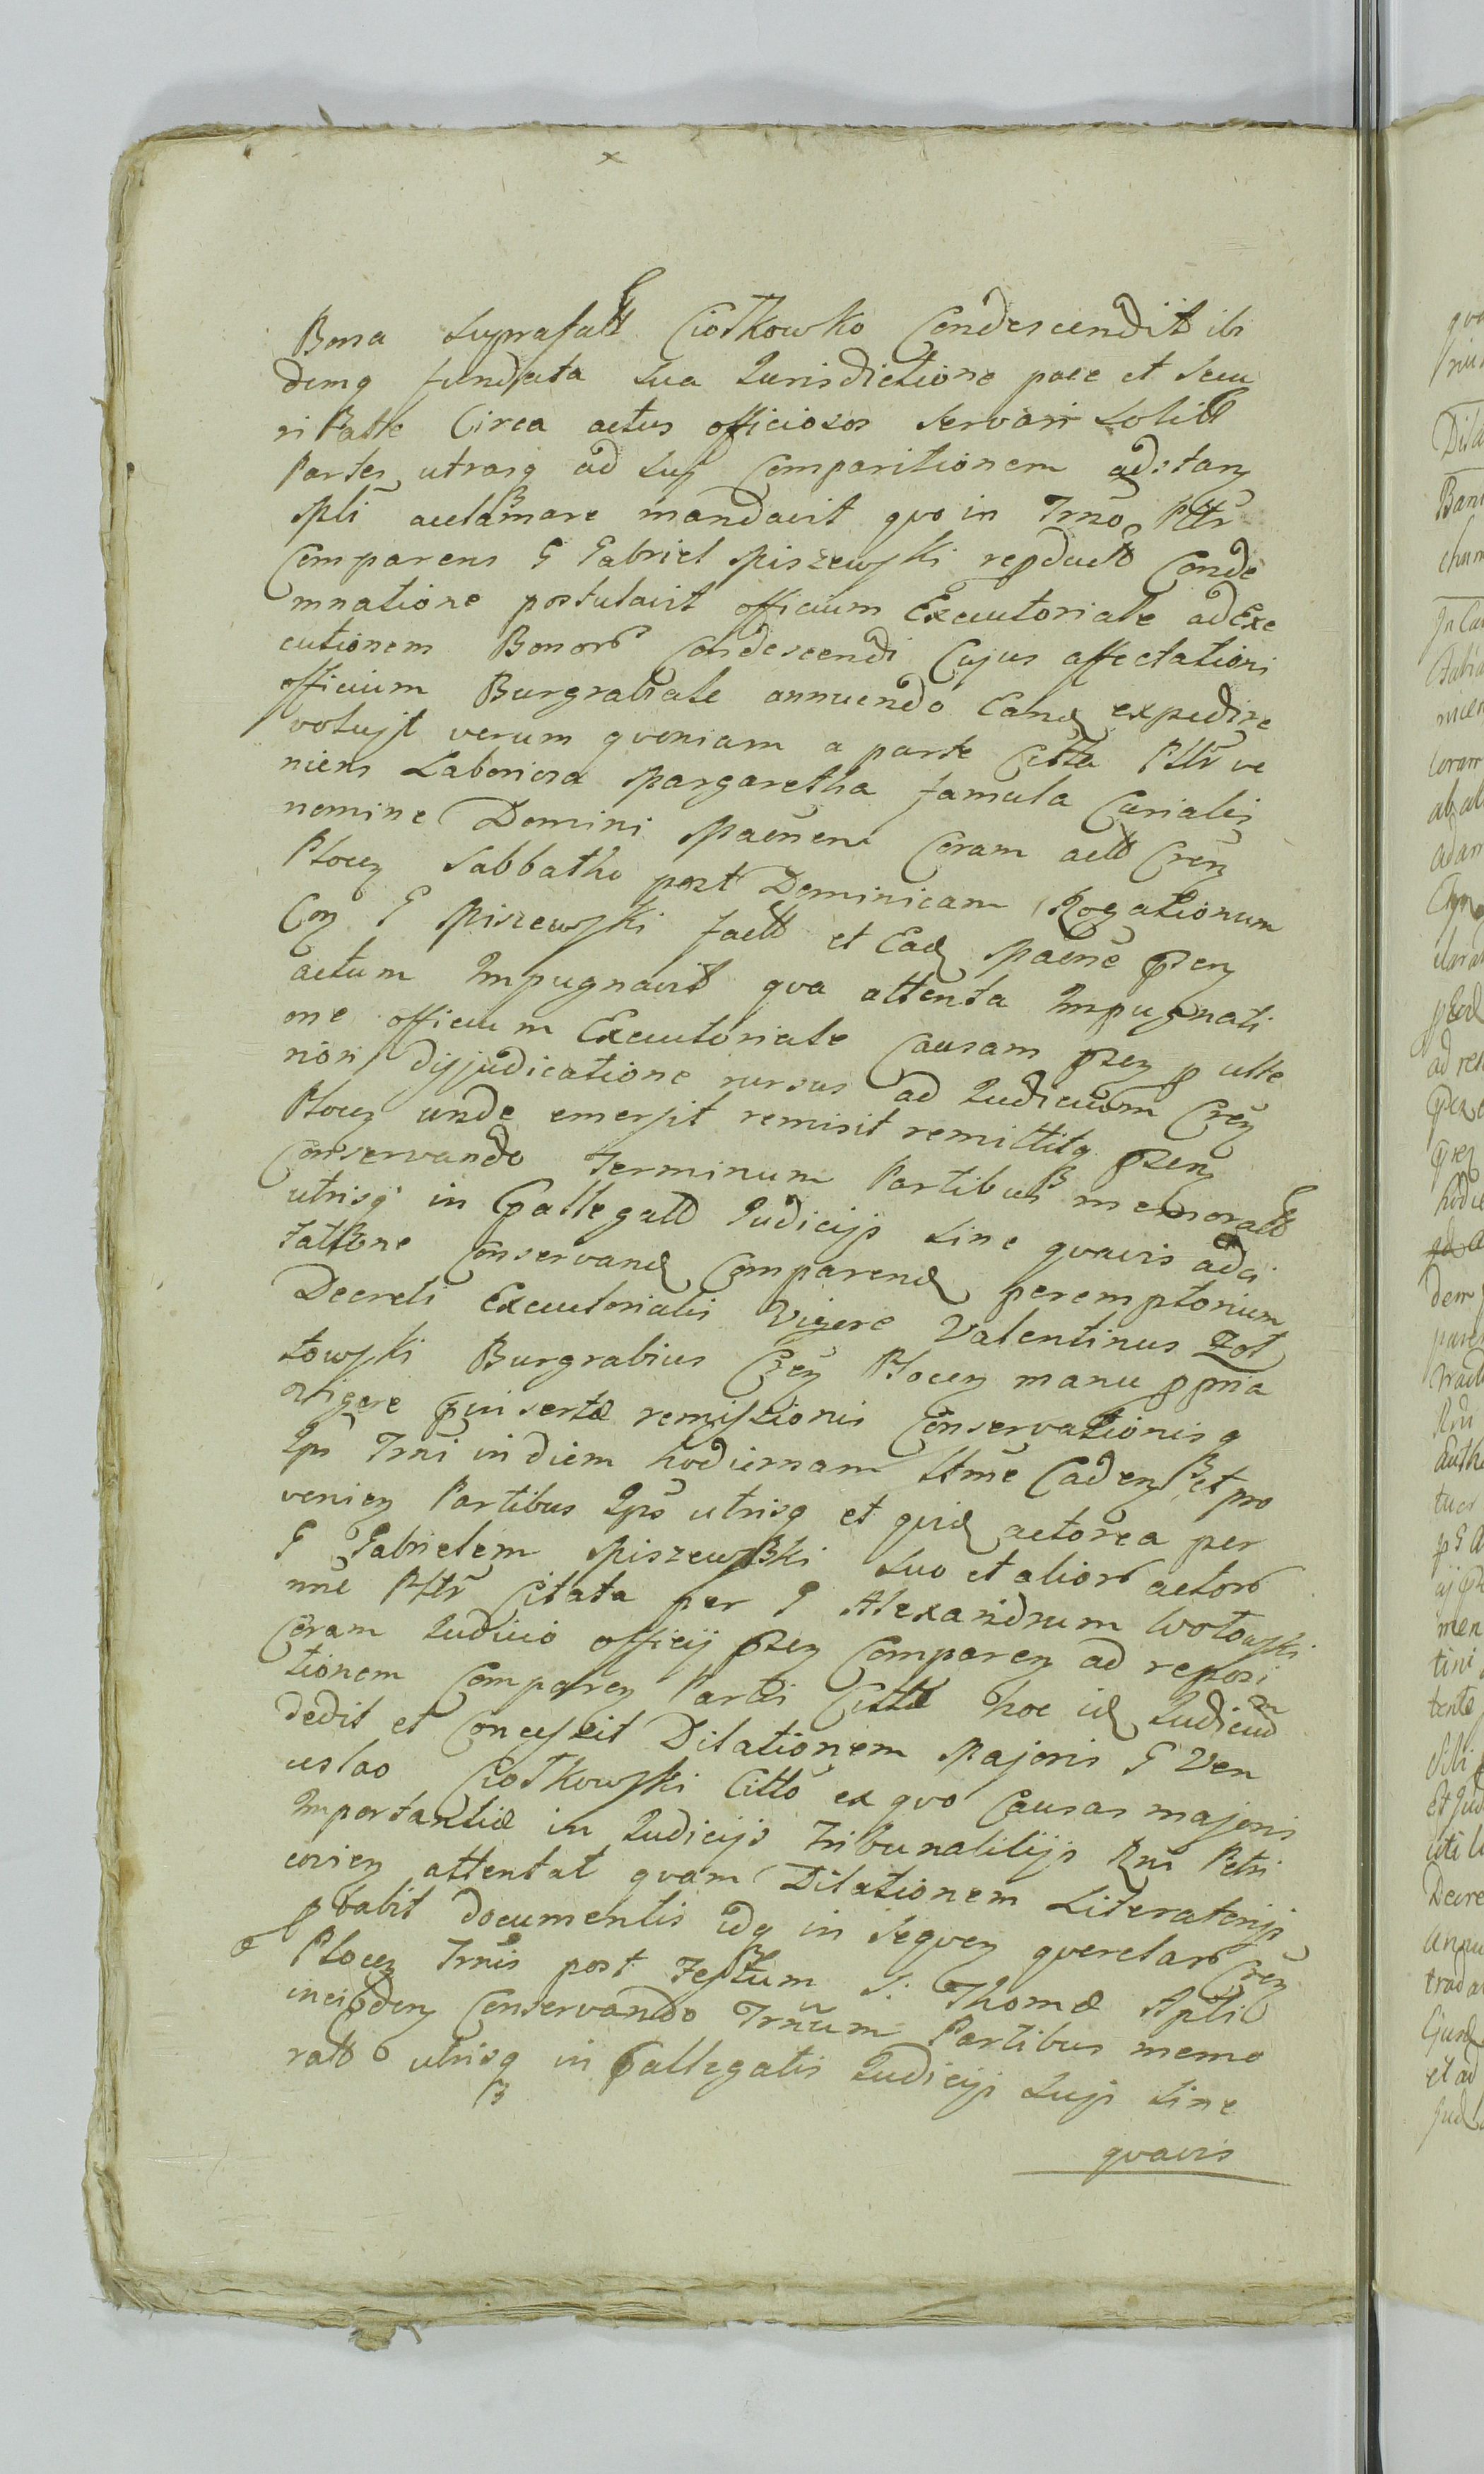 Bona suprafatt Ciołkowko Condescendit ibi
demq fundata sua Iurisdictione pace et secu
ritatte Circa actus officiosos servari solitt
Partes utrasq ad sui Comparitionem adstan
Mli acclamare mandavit quo in Trno Ptlr
Comparens G Gabriel Miszewski repductt Conde
mnatione postulavit officium Executoriale ad Exe
cutionem Bonor Condescendi Cujus affectationi
officium Burgrabiale annuendo Eand expedire
voluit verum quoniam a parte Citta Ptlr ve
niens Laboriosa Margaretha famula Curialis
nomine Domini Maenen Coram actt Cren
Plocen Sabbatho post Dominicam Rogationum
Con G Miszewski factt et Ead Maene pzen
actum Impugnavit qua attenta Impugnati
one officium Executoriale Causam pzen p ulte
riori dijudicatione rursus ad Iudicium Cren
Plocen unde emersit remisit remittitq pzen
Conservando Terminum Partibus memoratt
utrisq in pallegatt Iudicijs sine quavis adci
tattione Conservand Comparend peremptorium
Decreti Executorialis Vigore Valentinus Zot
towski Burgrabius Cren Plocen manu ppria
Vigore pinsertæ remissionis Conservationisq
Ips Trni in diem hodiernam lttme Caden et pro
venien Partibus Ips utrisq et quid actorea per
G Gabrielem Miszewski suo et alior actor
nne Ptlr Citata per G Alexandrum Wołowski
Coram Iudicio officij pzen Comparen ad reposi
tionem Comparen Parti Cittæ hoc id Iudicium
dedit et Concessit Dilationem Majoris G Ven
ceslao Ciołkowski Citto ex quo Causas majoris
Importantiæ in Iudicijs Tribunalitijs Rni Petri
covien attentat quam Dilationem Literatorijs
pbabit documentis idq in sequen querelar Cren
Plocen Trnis post Festum S. Thomæ Apli
inciden Conservando Trnum Partibus memo
ratt utrisq in pallegatis Iudicijs suis sine
quavis